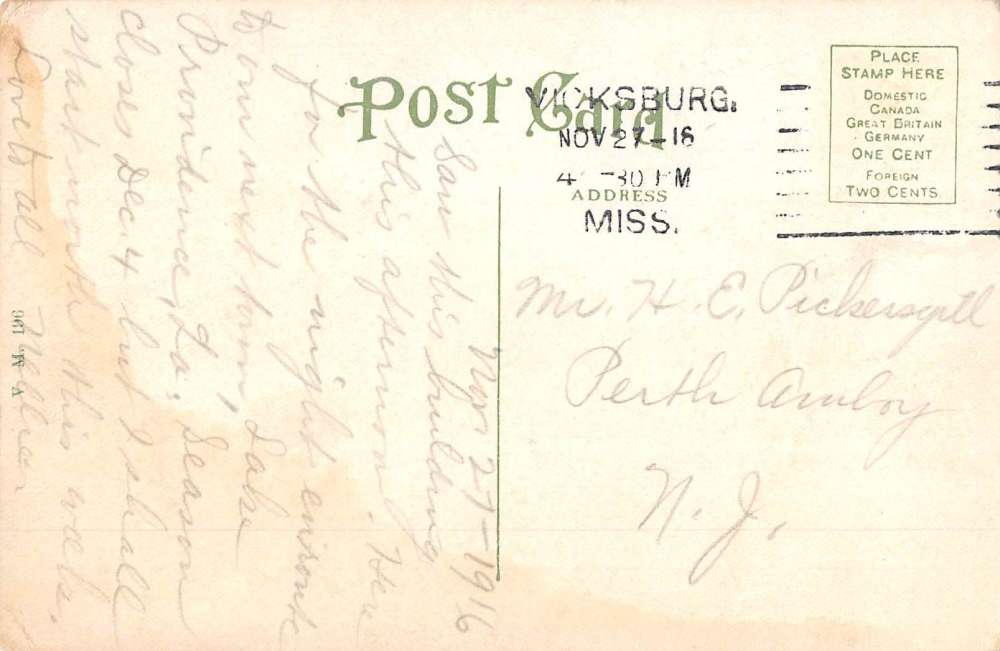 Post Card
VICKSBURG.
NOV 27-16
4 -30 PM
MISS.
ADDRESS
PLACE
STAMP HERE
DOMESTIC
CANADA
GREAT BRITAIN
GERMANY
ONE CENT
FOREIGN
TWO CENTS.
Mr. H. E. Pickersgill
Perth Amboy
N. J.
Nov 27-1916
Saw this building
this afternoon. Here
for the night enroute
to our next town, Lake
Providence, La. Season
closes Dec. 4 but I shall
start north this week.
Love to all
A M 196